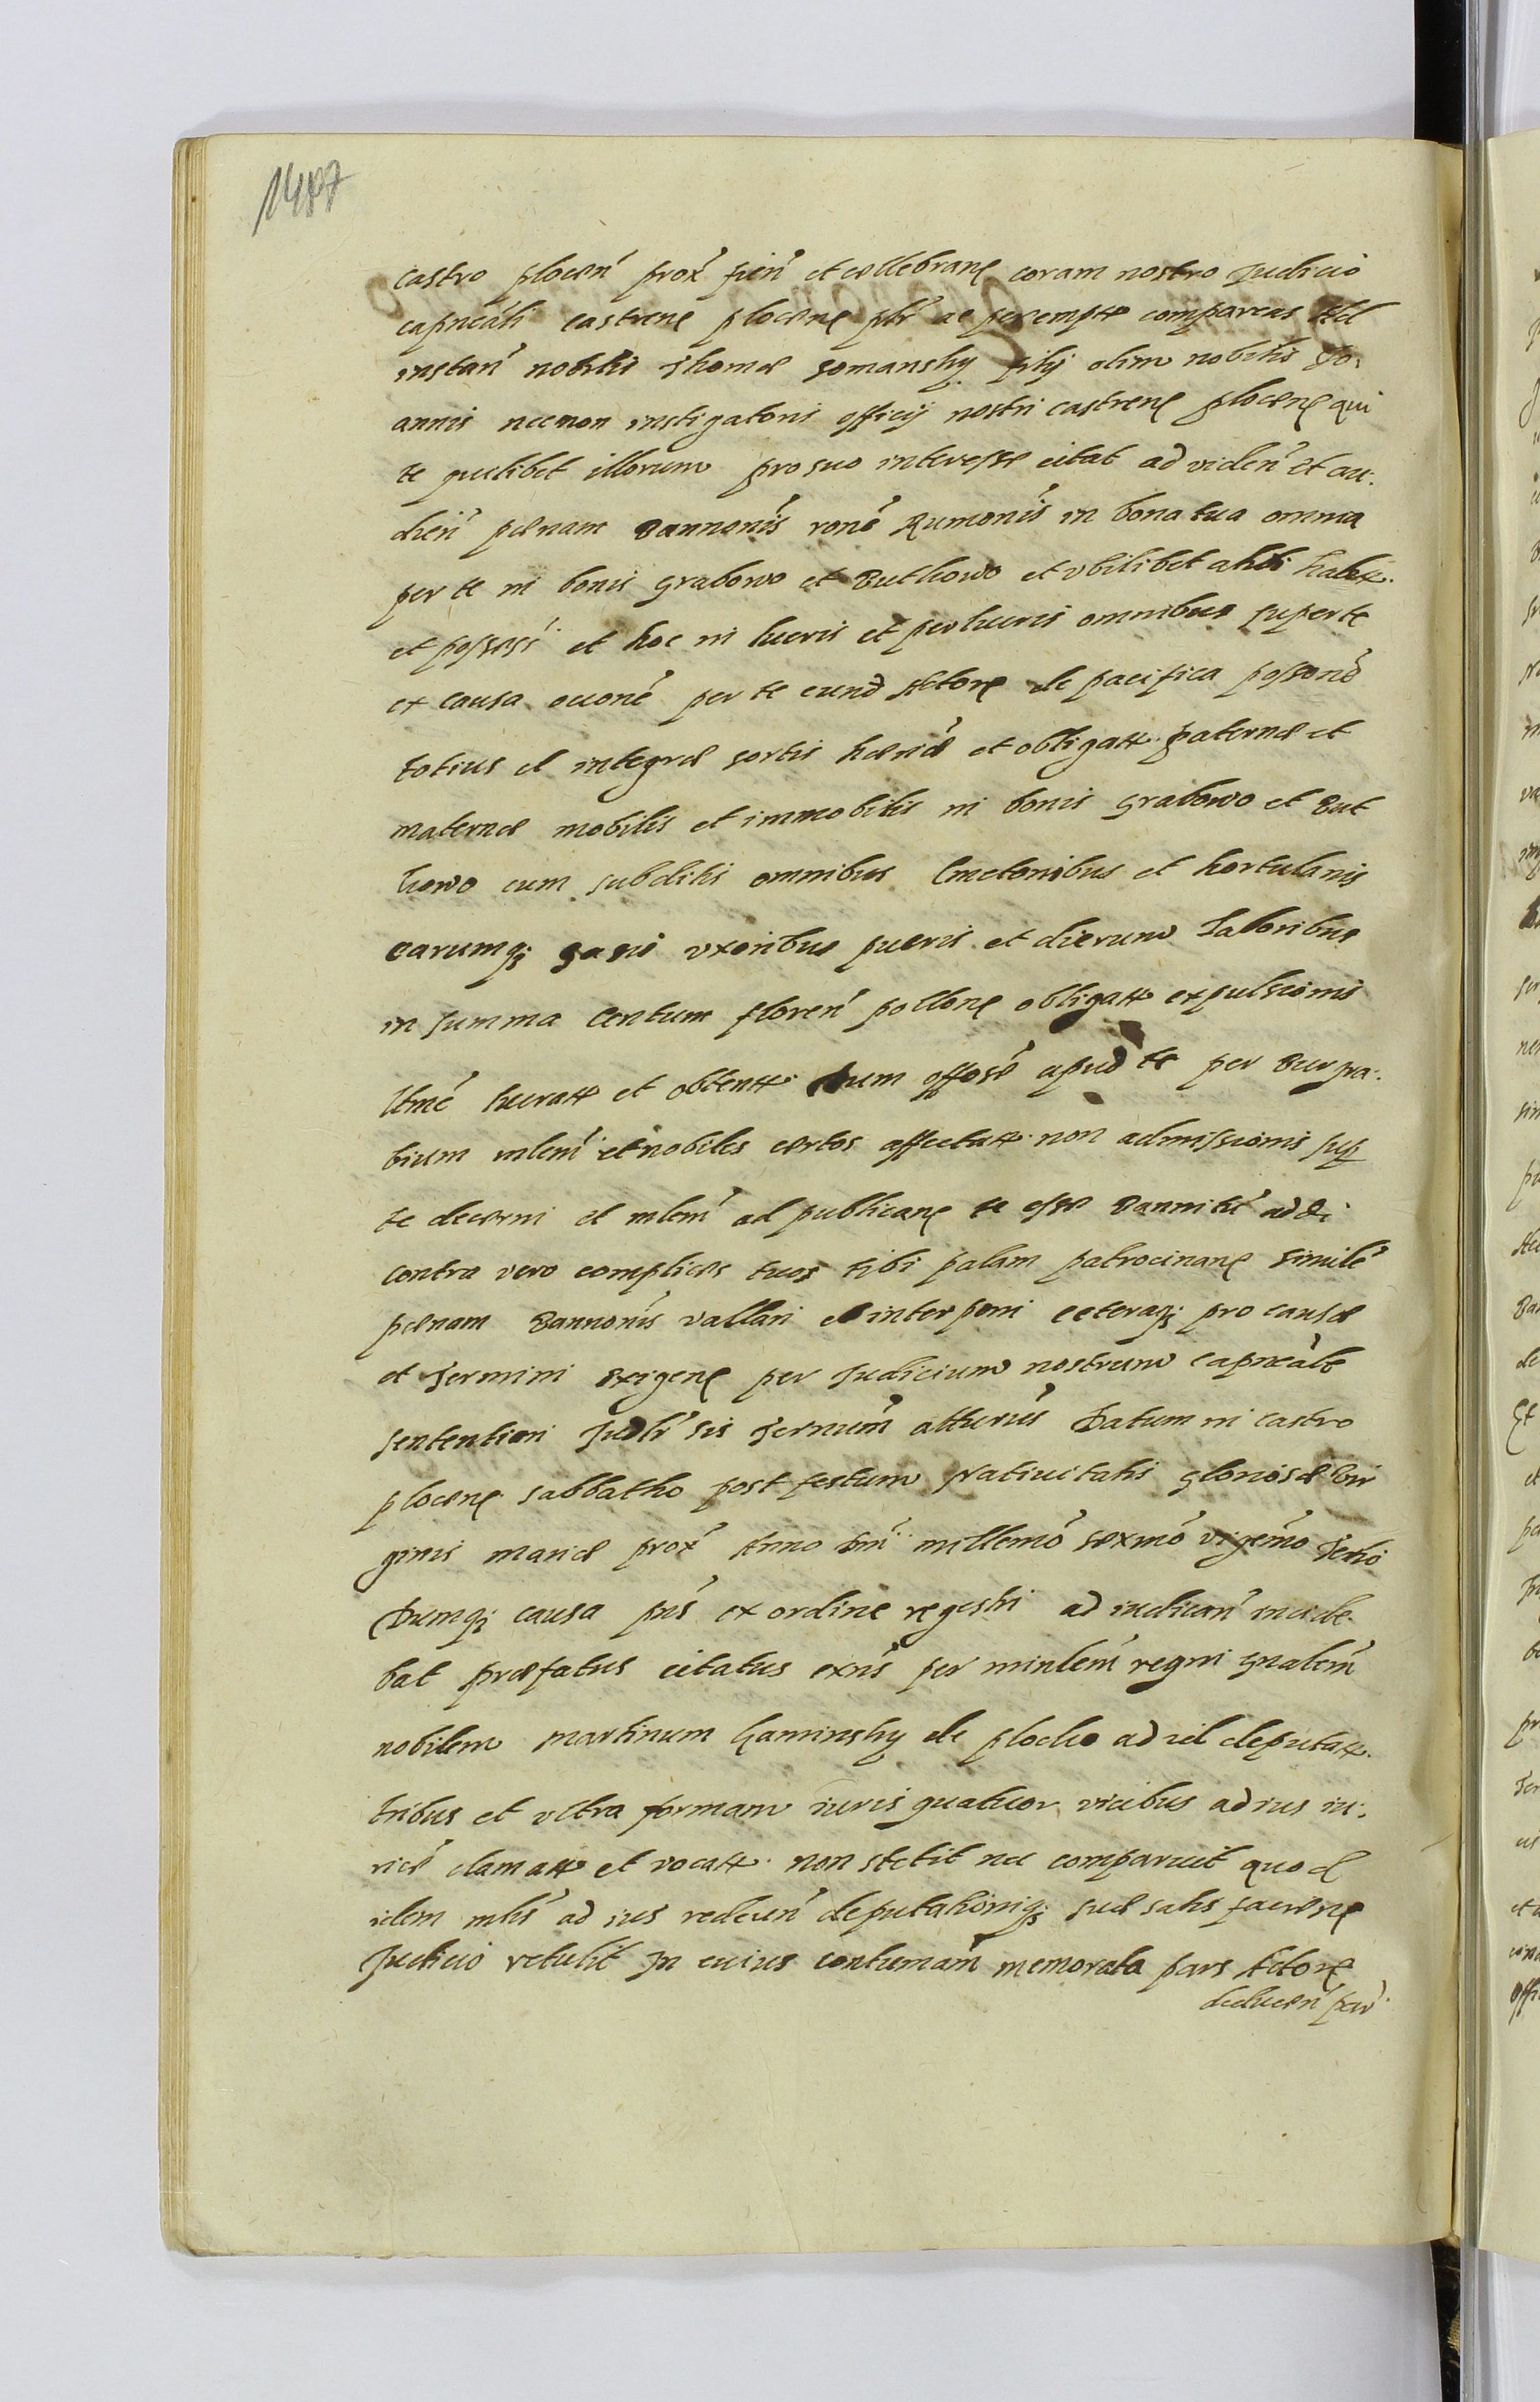 1487
castro plocen̄ prox̄ fien̄ et cellebranɇ coram nostro Judicio
capneali castrenɇ plocenɇ pltr ac peremptɇ compareas Ad
instan̄ nobilis Thomæ Somansky filij olim nobilis Jo:
annis necnon instigatoris officij nostri castrenɇ plocenɇ qui
te quilibet illorum pro suo interesse citat ad viden̄ et au:
dien̄ pænam Bannonis̄ ronē Rumonis̄ in bona tua omnia
per te in bonis grabowo et Butkowo et vbilibet alibi habitɇ
et possess̄ et hoc in lucris et perlucris omnibus super te
ex causa euonē per te eund̄ Actorɇ de pacifica possonē
totius et integræ sortis hæriæ et obligatɇ paternæ et
maternæ mobilis et immobilis in bonis grabowo et But
kowo cum subditis omnibus Cmetonibus et hortulanis
earumqȝ gazis vxoribus pueris et dierum laboribus
in summa Centum floren̄ pollonɇ obligatɇ expulsionis
ltmē lucratɇ et obtentɇ tum officē apud te per Bur gra:
bium mlem̄ et nobiles certos affectatɇ non admissionis sup
te decerni et mlem̄ ad publicanɇ te esse Bannitū addi
contra vero complices tuos tibi palam patrocinanɇ similē
pænam Bannonis̄ vallari et interponi ceteraqȝ pro causæ
et Termini exigenɇ per Judicium nostrum capneale
sententiari Judlr̄ sis Termin̄ atturus̄ Datum in castro
plocenɇ sabbatho post festum Natiuitatis gloriosæ Vir
ginis mariæ prox̄ Anno Dn̄i millemō sexmō vigemō Tertiō
Dumqȝ causa pn̄s ex ordine regestri ad iudican̄ incide
bat præfatus citatus exn̄s per minlem̄ regni gnalem̄
nobilem Martinum Kaminsky de plocko ad id deputatɇ
tribus et vltra formam iuris quatuor vicibus ad ius iu:
riæ clamatɇ et vocatɇ non stetit nec comparuit quod
idem mls̄ ad ius redeun̄ deputationiqȝ suæ satis facienɇ
Judicio retulit In cuius contumam̄ memorata pars Actorɇ
deducen̄